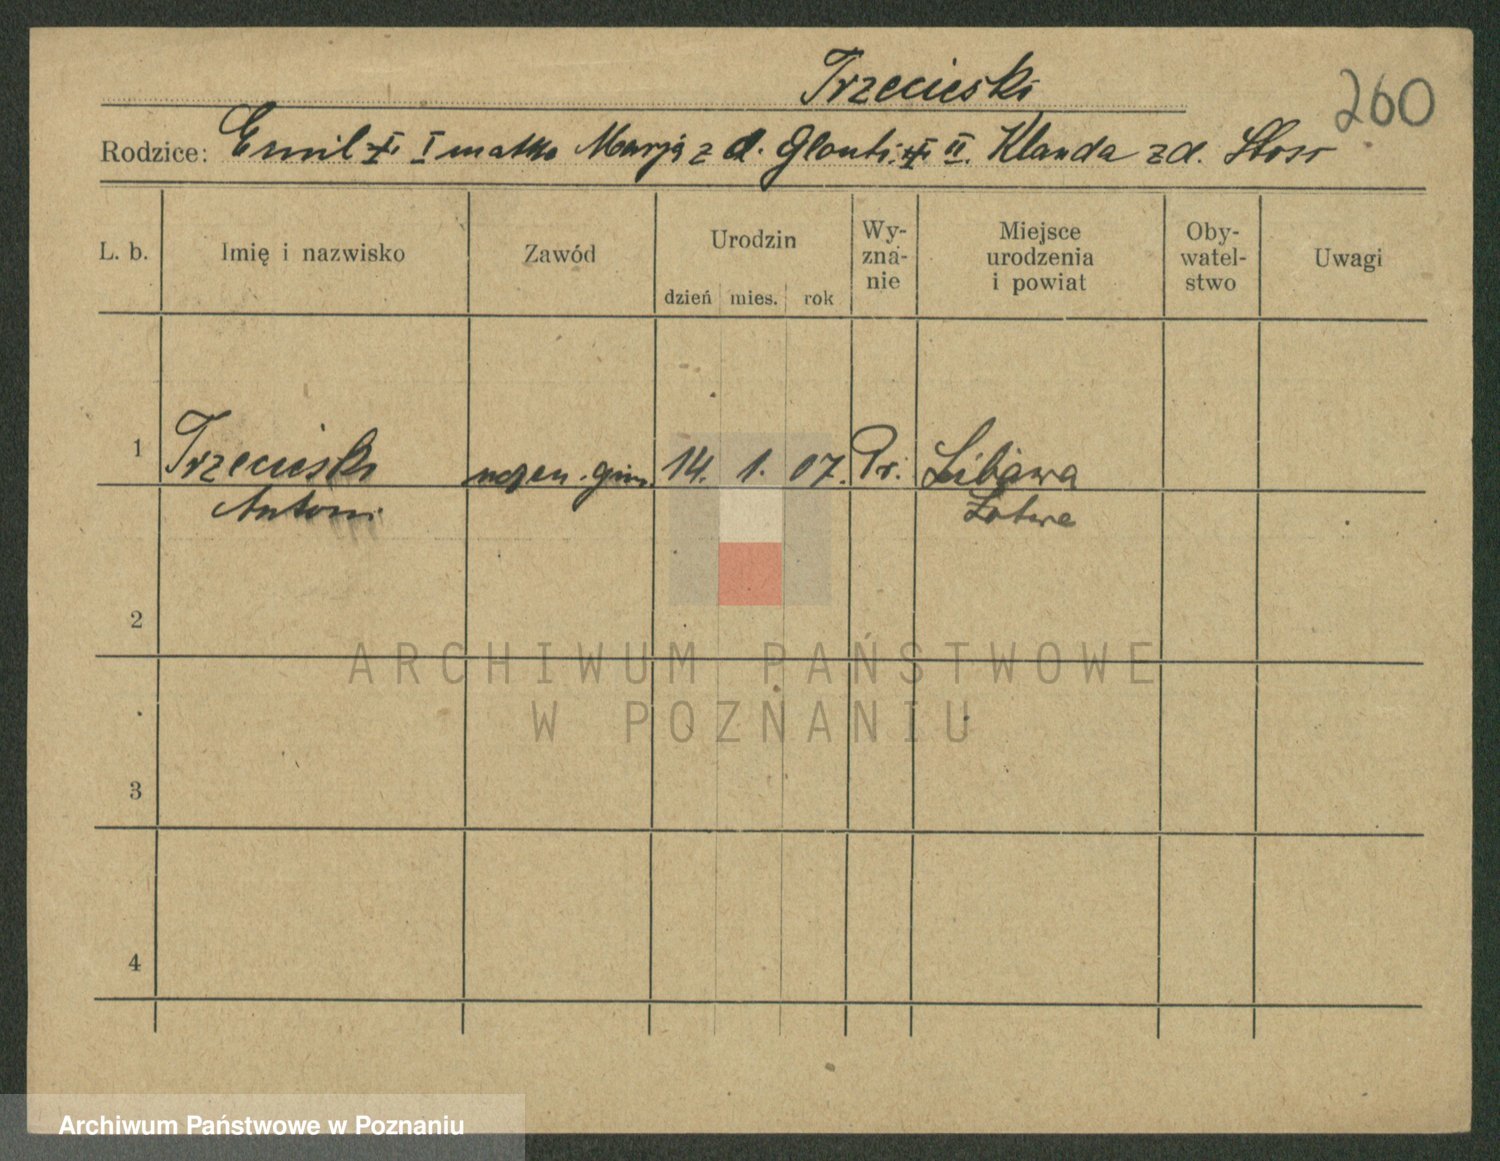 Trzecieski
260
Rodzice: Emil I matka Marja z d. II. Klauda z d. Stoss
L. b. Imię i nazwisko Zawód Urodzin dzień mies. rok Wy-znа-nie Miejsce urodzenia i powiat Oby-watel-stwo Uwagi
1 Trzecieski 14. 1. 07. Pr. Libawa
Antoni Łotwa
2
ARCHIWUM PAŃSTWOWE
W POZNANIU
3
4
Archiwum Państwowe w Poznaniu